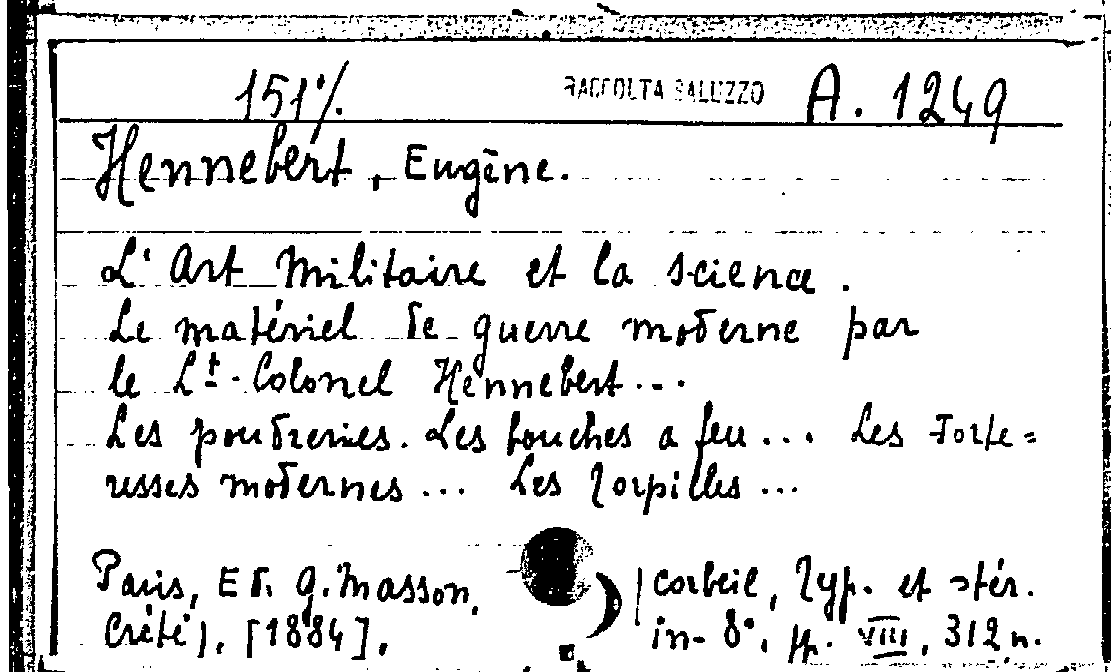 151% RACCOLTA SALUZZO A. 1249
Hennebert, Eugène.
L'Art Militaire et la science.
Le matériel de guerre moderne par
le Lt-Colonel Hennebert...
Les poudreries. Les bouches a feu... Les Forte=
resses modernes... Les Torpilles...
Paris, Ed. G. Masson, | Corbeil, Typ. et stér.
Crété), [1884], in-8°, pp. VIII, 312 n.